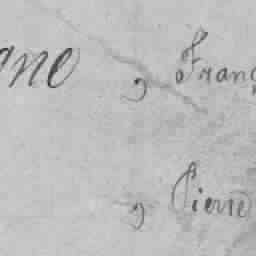 ane , Franç
, Pierre